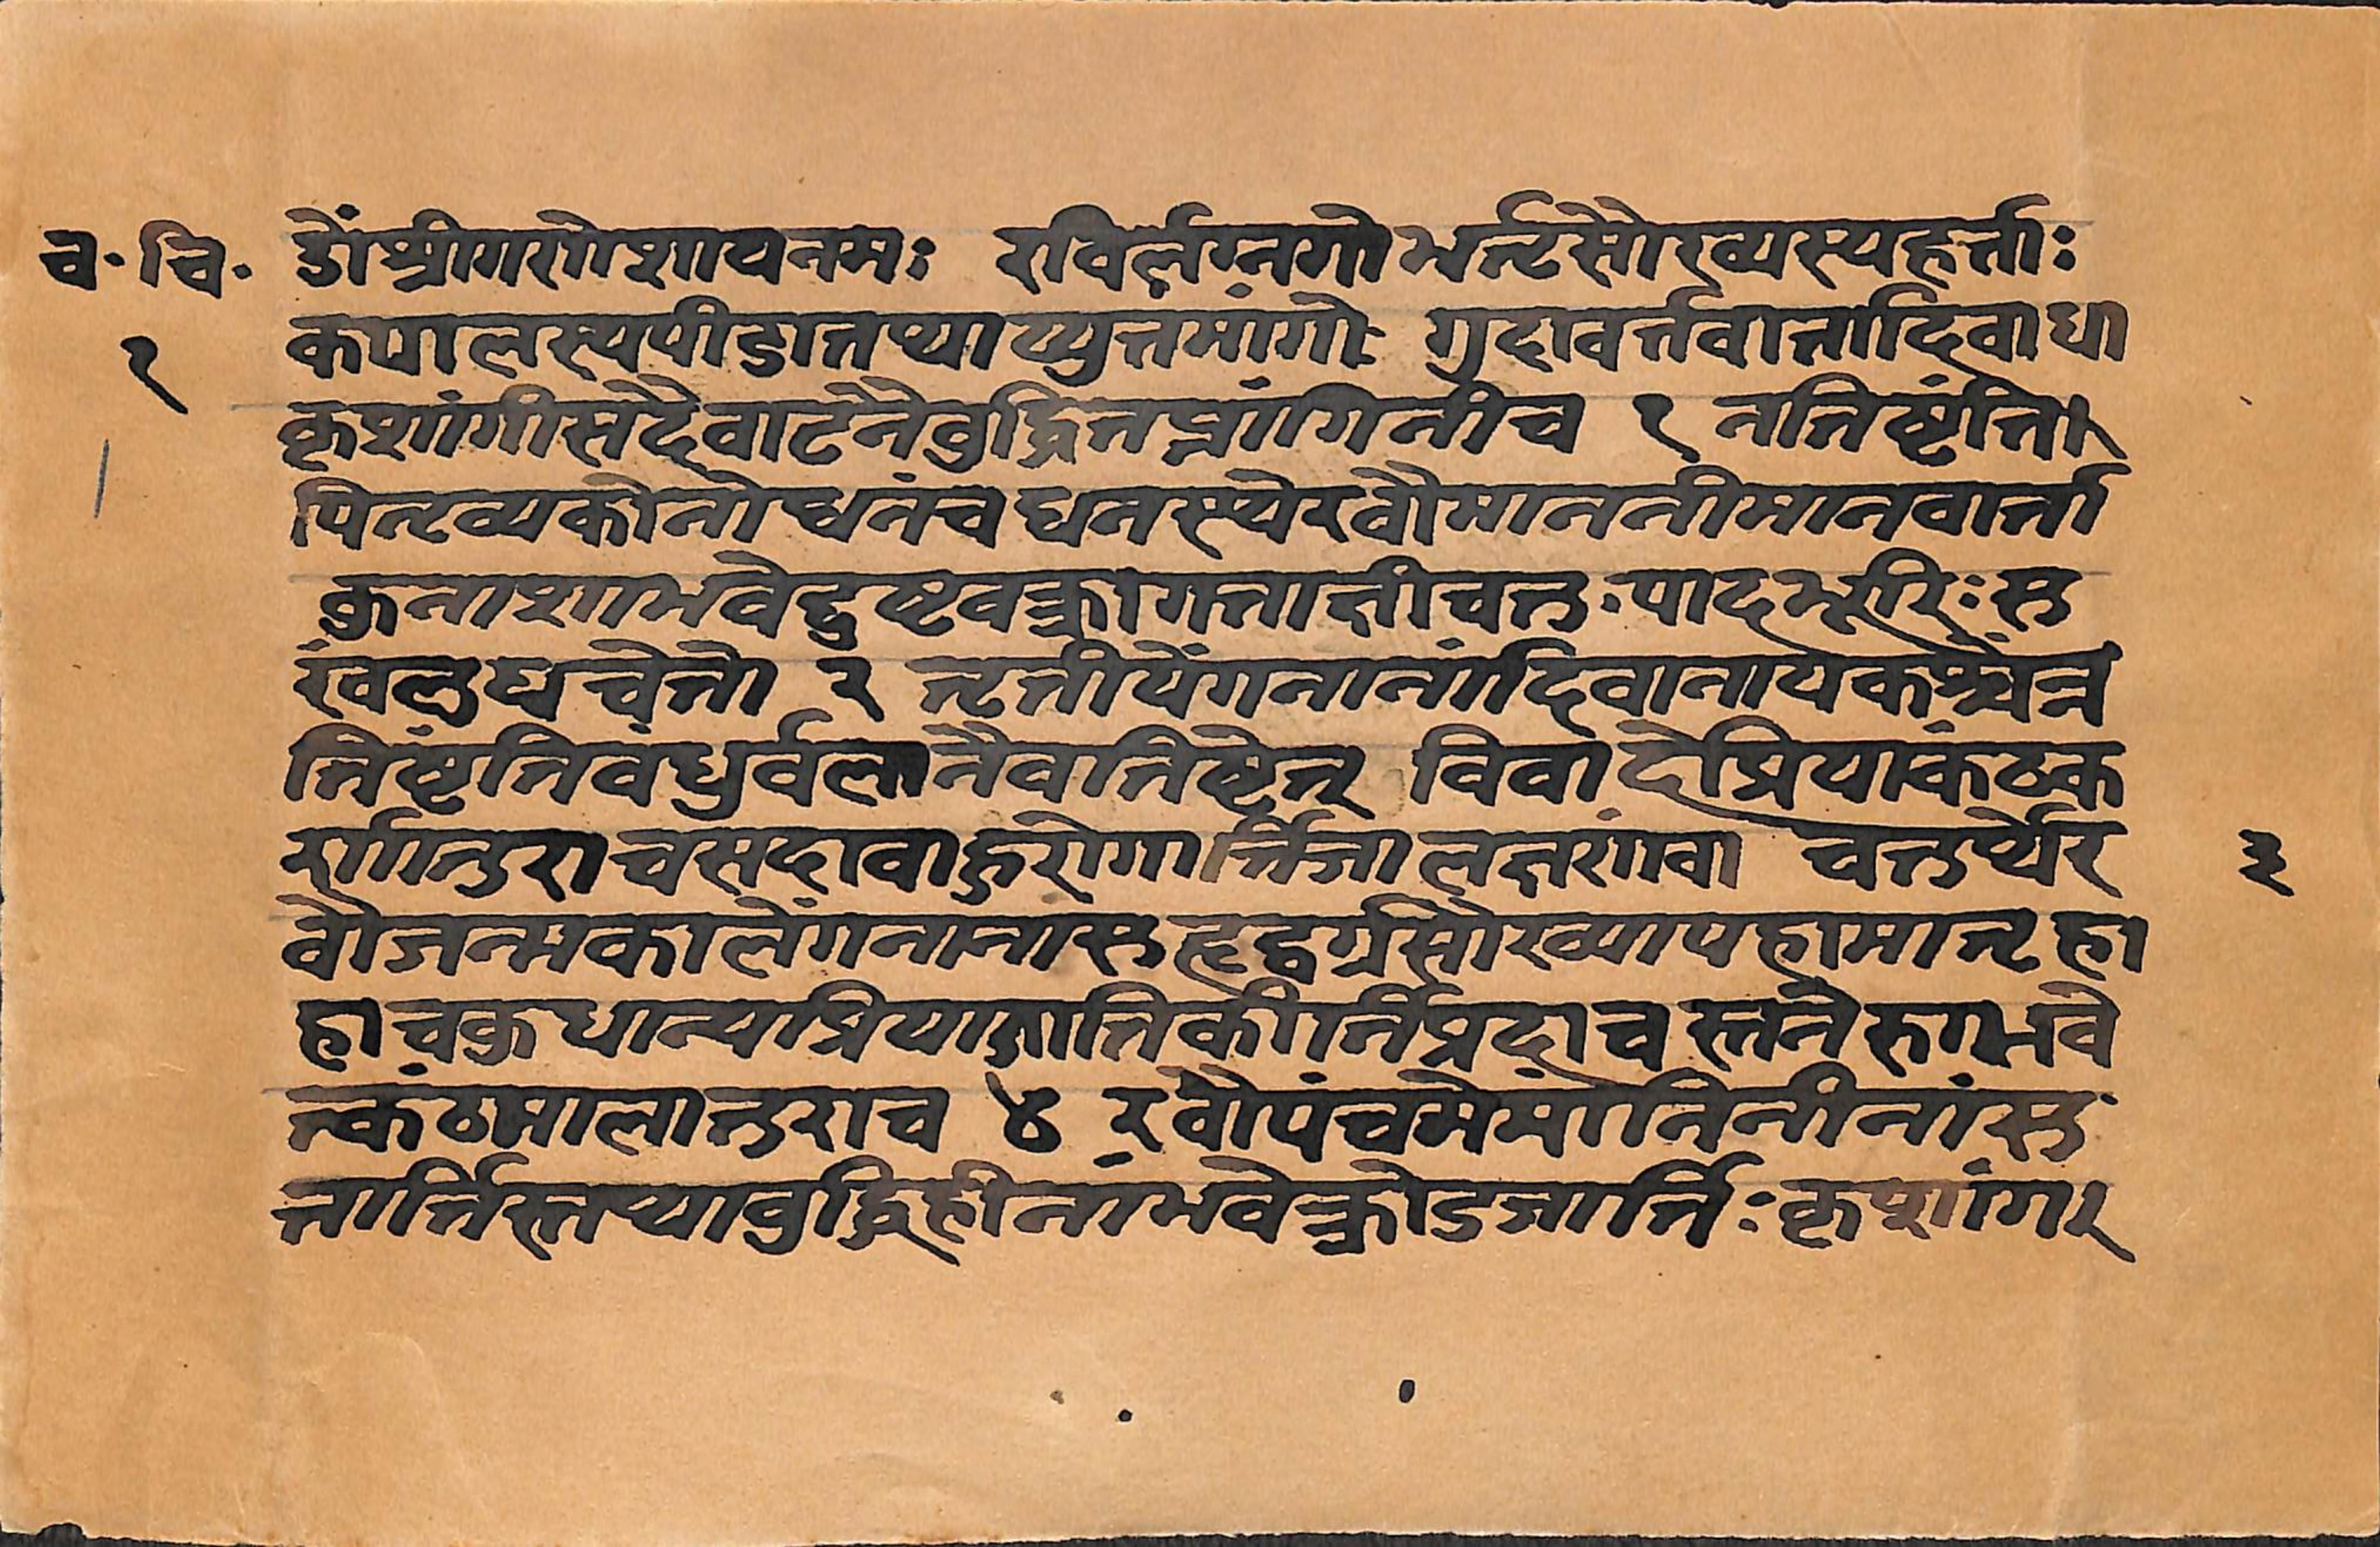 च. चि. ओं श्रीगणेशायनमः रविर्लग्नगो भर्तृसौख्यस्यहर्त्ताः
१ कपालस्यपीडातथाव्युत्तमांगो गुदावर्त्तवातादिवाधा
कृशांगीसदैवाटनैवुद्धितप्तांगिनीच १ नतिष्टंति
पितृव्यकोनोधनंच धनस्थेरवौमाननीमानवार्त्ता
कुनाशाभवेद्दुष्टवक्त्रागतार्तीचतुःपादभूरिःसु
खंलघुचेतो २ तृतीयेंगनानांदिवानायकश्चेन्न
तिष्टंतिवंधुर्वलानैवातिष्टेत् विवादेप्रियाकंठक
र्णातुराचसदावाहुरोगार्त्तिजालक्षणंवा चतुर्थेर ३
वौजन्मकालेंगनानांसुहृद्वर्गसौख्यापहामातृहा
हाचकुधान्यप्रियाज्ञातिकीर्तिप्रदाचस्तनेरुग्भवे
त्कंठमालातुराच ४ रवौपंचमेमानिनीनांसु
तार्त्तिस्तथावुद्धिहीनांभवेक्रोडजार्त्तिःकृशांगा